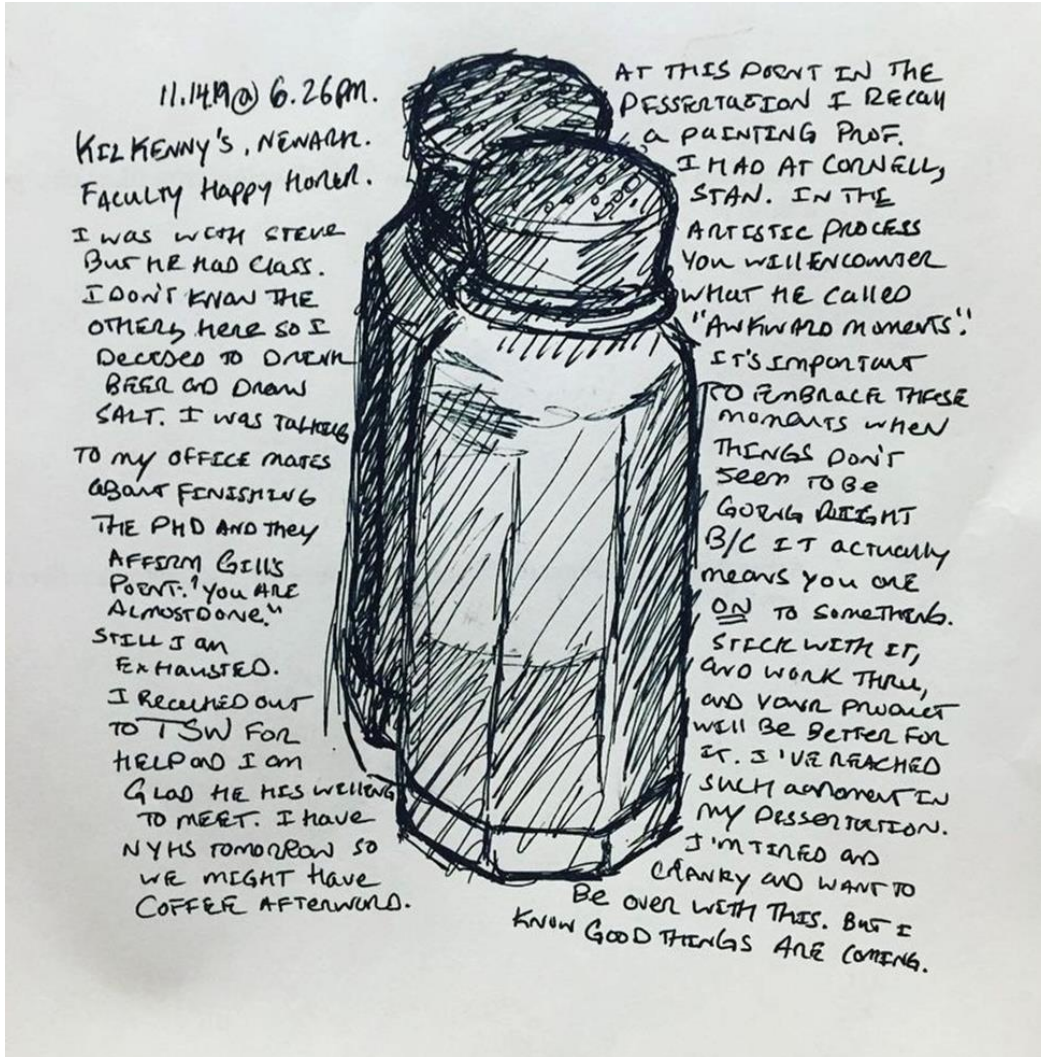 11.14.19@ 6.26PM.
KILKENNY'S, NEWARK.
FACULTY HAPPY HOUR.
I WAS WITH STEVE
BUT HE HAD CLASS.
I DON'T KNOW THE
OTHERS HERE SO I
DECIDED TO DRINK
BEER AND DRAW
SALT. I WAS TALKING
TO MY OFFICE MATES
ABOUT FINISHING
THE PHD AND THEY
AFFIRM GILL'S
POINT: "YOU ARE
ALMOST DONE."
STILL I AM
EXHAUSTED.
I REACHED OUT
TO TSW FOR
HELP AND I AM
GLAD HE HIS WILLING
TO MEET. I HAVE
NYHS TOMORROW SO
WE MIGHT HAVE
COFFEE AFTERWORD.
AT THIS POINT IN THE
DISSERTATION I RECALL
A PAINTING PROF.
I HAD AT CORNELL,
STAN. IN THE
ARTISTIC PROCESS
YOU WILL ENCOUNTER
WHAT HE CALLED
"AWKWARD MOMENTS."
IT'S IMPORTANT
TO EMBRACE THESE
MOMENTS WHEN
THINGS DON'T
SEEM TO BE
GOING RIGHT
B/C IT ACTUALLY
MEANS YOU ARE
ON TO SOMETHING.
STICK WITH IT,
AND WORK THRU,
AND YOUR PRODUCT
WILL BE BETTER FOR
IT. I'VE REACHED
SUCH A MOMENT IN
MY DISSERTATION.
I'M TIRED AND
CRANKY AND WANT TO
BE OVER WITH THIS. BUT I
KNOW GOOD THINGS ARE COMING.